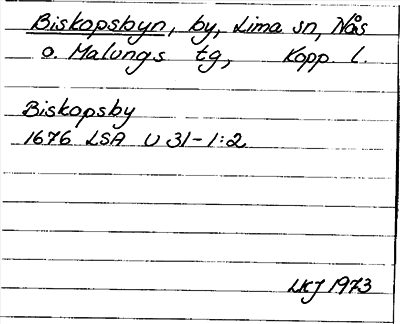 Biskopsbyn, by, Lima sn, Nås
o. Malungs tg, Kopp. l.
Biskopsby
1676 LSA U 31-1:2
LKJ 1973